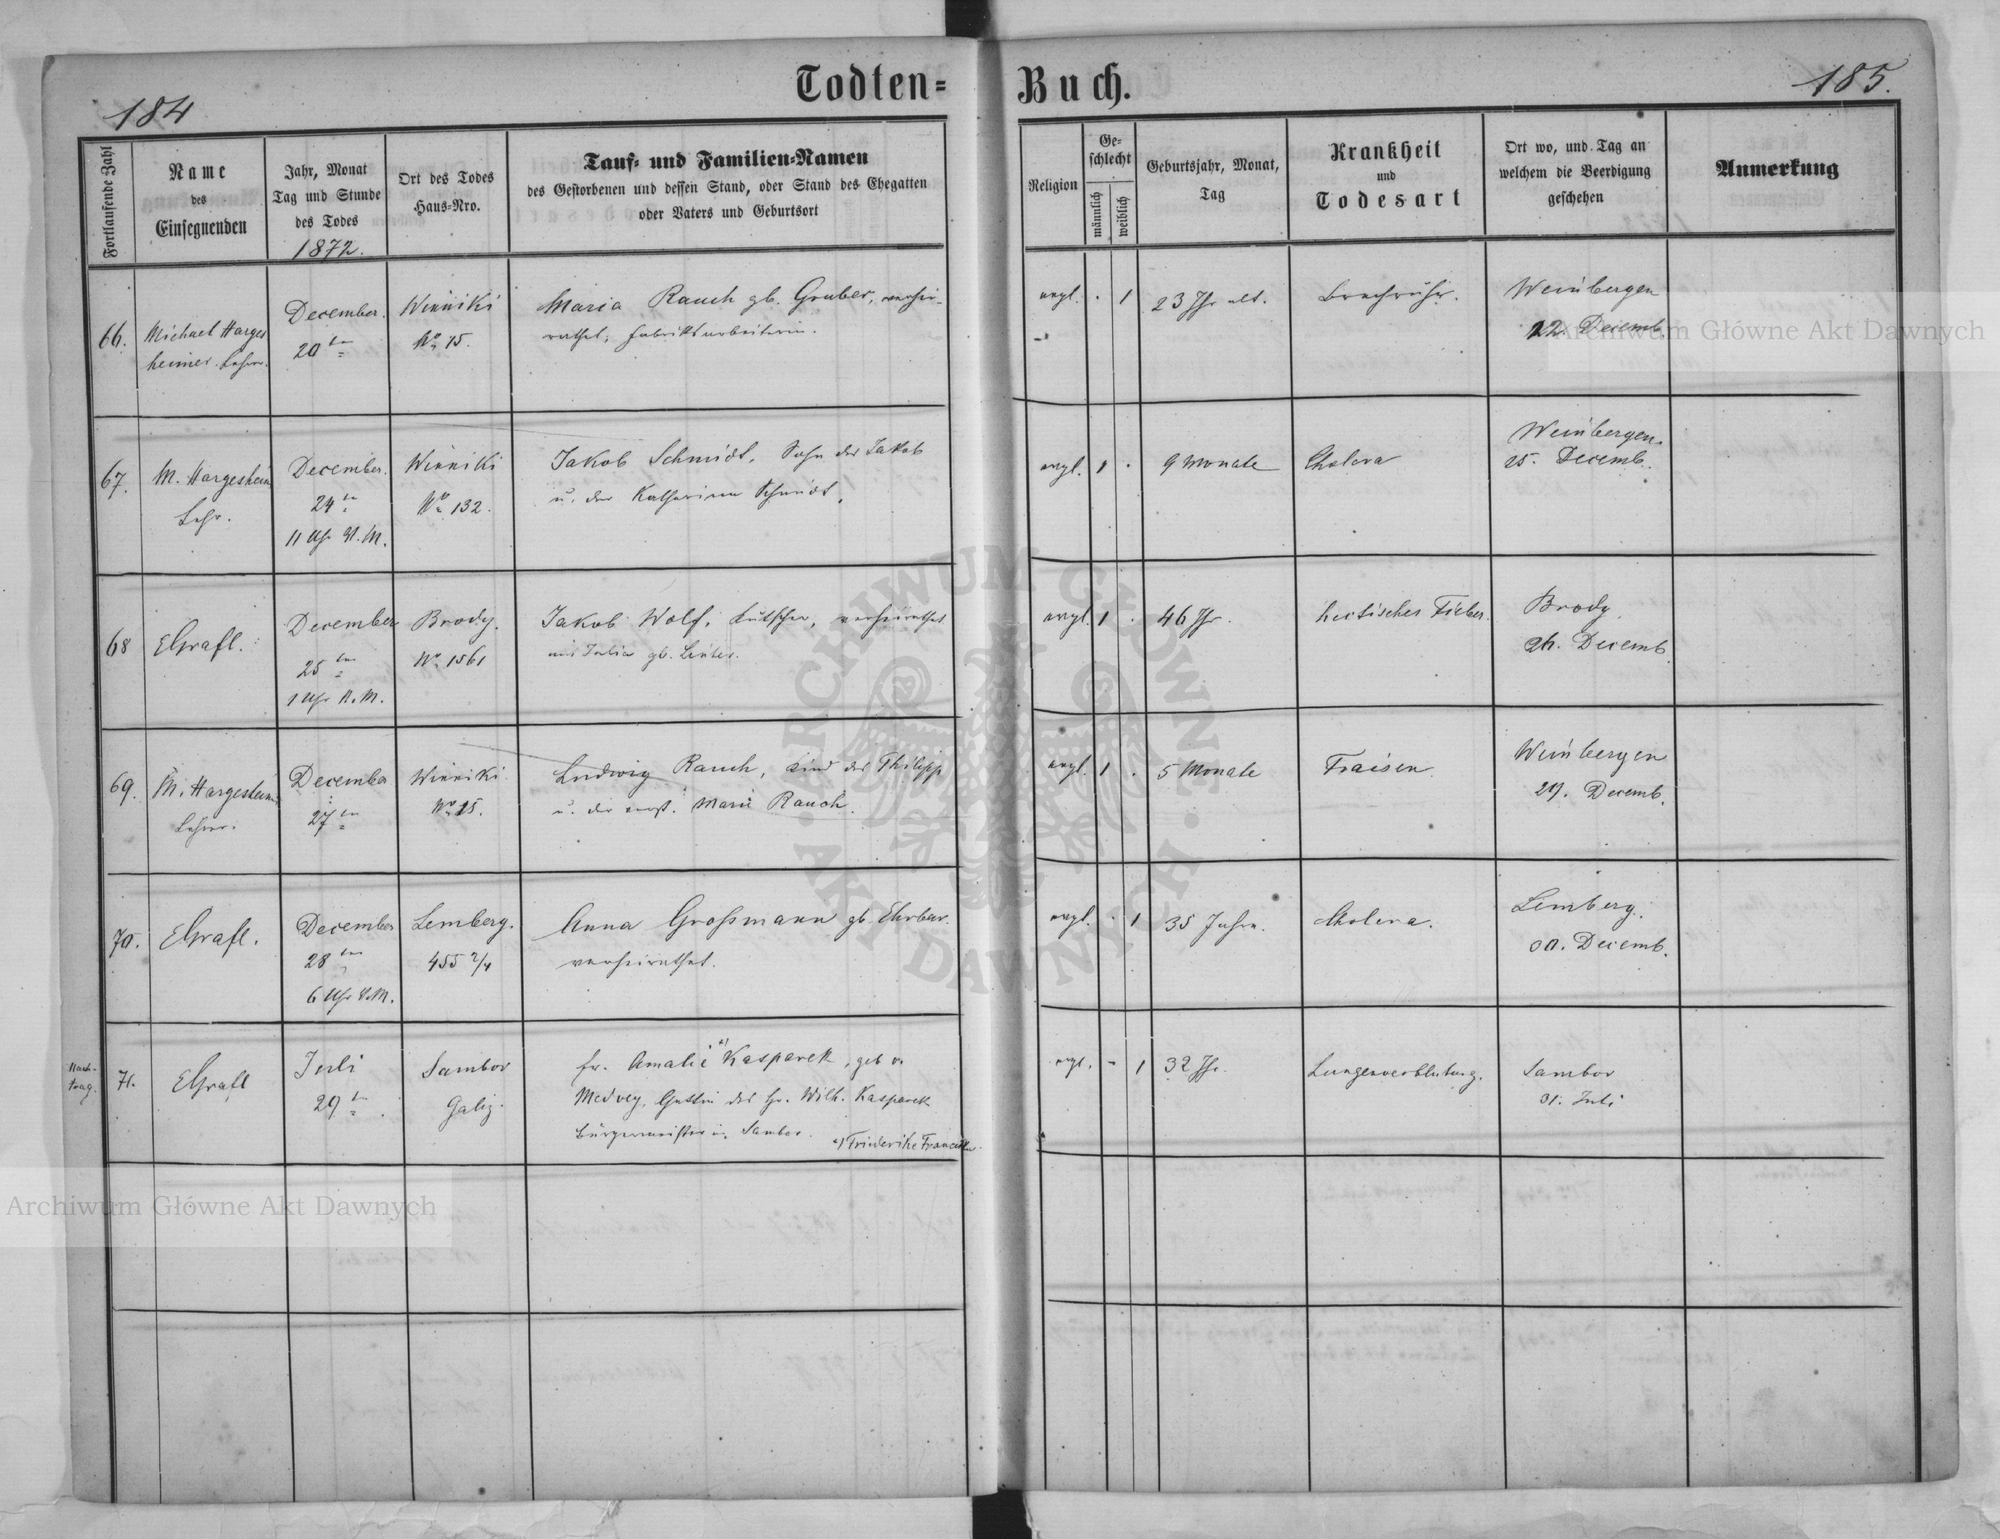 Todten=
Buch.
184
185.
Fortlaufende Zahl
Name
des
Einsegnenden
Jahr, Monat
Tag und Stunde
des Todes
1872.
Ort des Todes
Haus-Nro.
Tauf- und Familien-Namen
des Gestorbenen und dessen Stand, oder Stand des Ehegatten
oder Vaters und Geburtsort
Religion
Ge-
schlecht
männlich
weiblich
Geburtsjahr, Monat,
Tag
Krankheit
und
Todesart
Ort wo, und Tag an
welchem die Beerdigung
geschehen
Anmerkung
66.
Michael Harges
heimer. Lehrer.
December.
20
Winniki
No 15.
Maria Rauch gb. Gruber, verhei-
rathet, Fabriksarbeiterin.
evgl. . 1
23 Jhr alt.
Brechruhr.
Weinbergen
22. Decemb.
67.
M. Hargesheim
Lehr.
December.
24
11 Uhr
Winniki
No 132.
Jakob Schmidt, Sohn des Jakob
u. der Katharina Schmidt.
evgl. 1 .
9 Monate
Cholera
Weinbergen.
25. Decemb.
68
EGrafl.
December
25
1 Uhr N.M.
Brody.
No 1561
Jakob Wolf, Kutscher, verheirathet
mit Julia gb.
evgl. 1 .
46 Jhr.
hectisches Fieber.
Brody
26. Decemb.
69.
M. Hargesheim
Lehrer.
December
27
Winniki
No 15.
Ludwig Rauch, Kind des Philipp
u. der verst. Marie Rauch.
evgl. 1 .
5 Monate
Fraisen.
Weinbergen
29. Decemb.
70.
EGrafl.
December
28
6 Uhr
Lemberg.
455 2/4
Anna Großmann gb. Ehrbar.
verheirathet.
evgl. . 1
35 Jahre.
Cholera.
Lemberg.
30. Decemb.
Nach-
trag.
71.
EGrafl
Juli
29
Sambor
Galiz.
Fr. Amalie a) Kasparek, geb v.
Medvey, Gattin des Hr. Wilh. Kasparek
Bürgermeister in Sambor. a) Friederike
evgl. - 1
32 Jhr.
Lungenverblutung.
Sambor
31. Juli
Archiwum Główne Akt Dawnych
Archiwum Główne Akt Dawnych
ARCHIWUM GŁÓWNE
AKT DAWNYCH